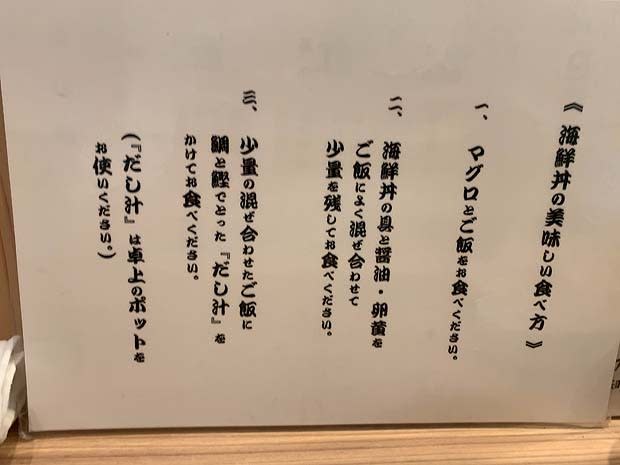 《海鮮丼の美味しい食べ方》
一、マグロとご飯をお食べください。
二、海鮮丼の具と醤油・卵黄を
ご飯によく混ぜ合わせて
少量を残してお食べください。
三、少量の混ぜ合わせたご飯に
鯛と鰹でとった『だし汁』を
かけてお食べください。
(『だし汁』は卓上のポットを
お使いください。)